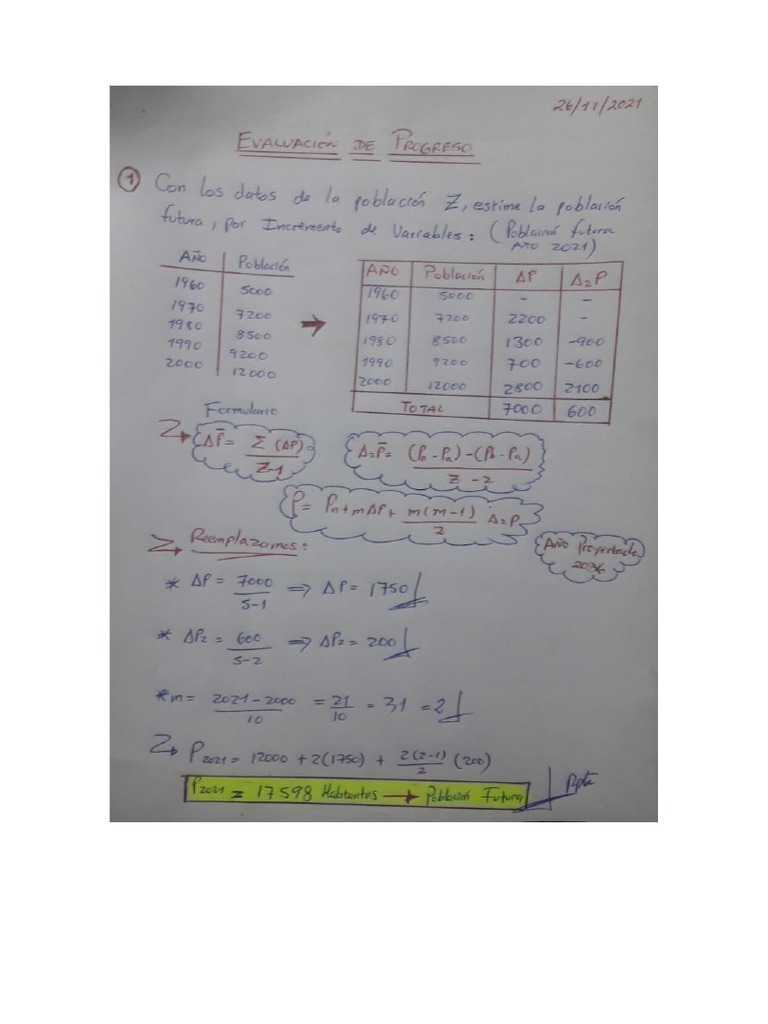 26/11/2021
EVALUACIÓN DE PROGRESO
① Con los datos de la población Z, estime la población
futura, por Incremento de Variables: (Población futura
AÑO 2021)
AÑO Población
1960 5000
1970 7200
1980 8500
1990 9200
2000 12000
AÑO Población ΔP Δ₂P
1960 5000 - -
1970 7200 2200 -
1980 8500 1300 -900
1990 9200 700 -600
2000 12000 2800 2100
TOTAL 7000 600
Formulario
ΔP̄ = Σ(ΔP) / Z-1
Δ₂P̄ = (Pn - Pa) - (Pb - Pa) / Z - 2
P = Pn + mΔP + m(m-1)/2 Δ₂P
Reemplazamos:
Año Proyectado
2036
* ΔP = 7000 / 5-1 ⇒ ΔP = 1750
* ΔP₂ = 600 / 5-2 ⇒ ΔP₂ = 200
* m = 2021-2000 / 10 = 21/10 = 31 = 2
P2021 = 12000 + 2(1750) + 2(2-1)/2 (200)
P2021 = 17598 Habtantes → Población Futura
Rpta